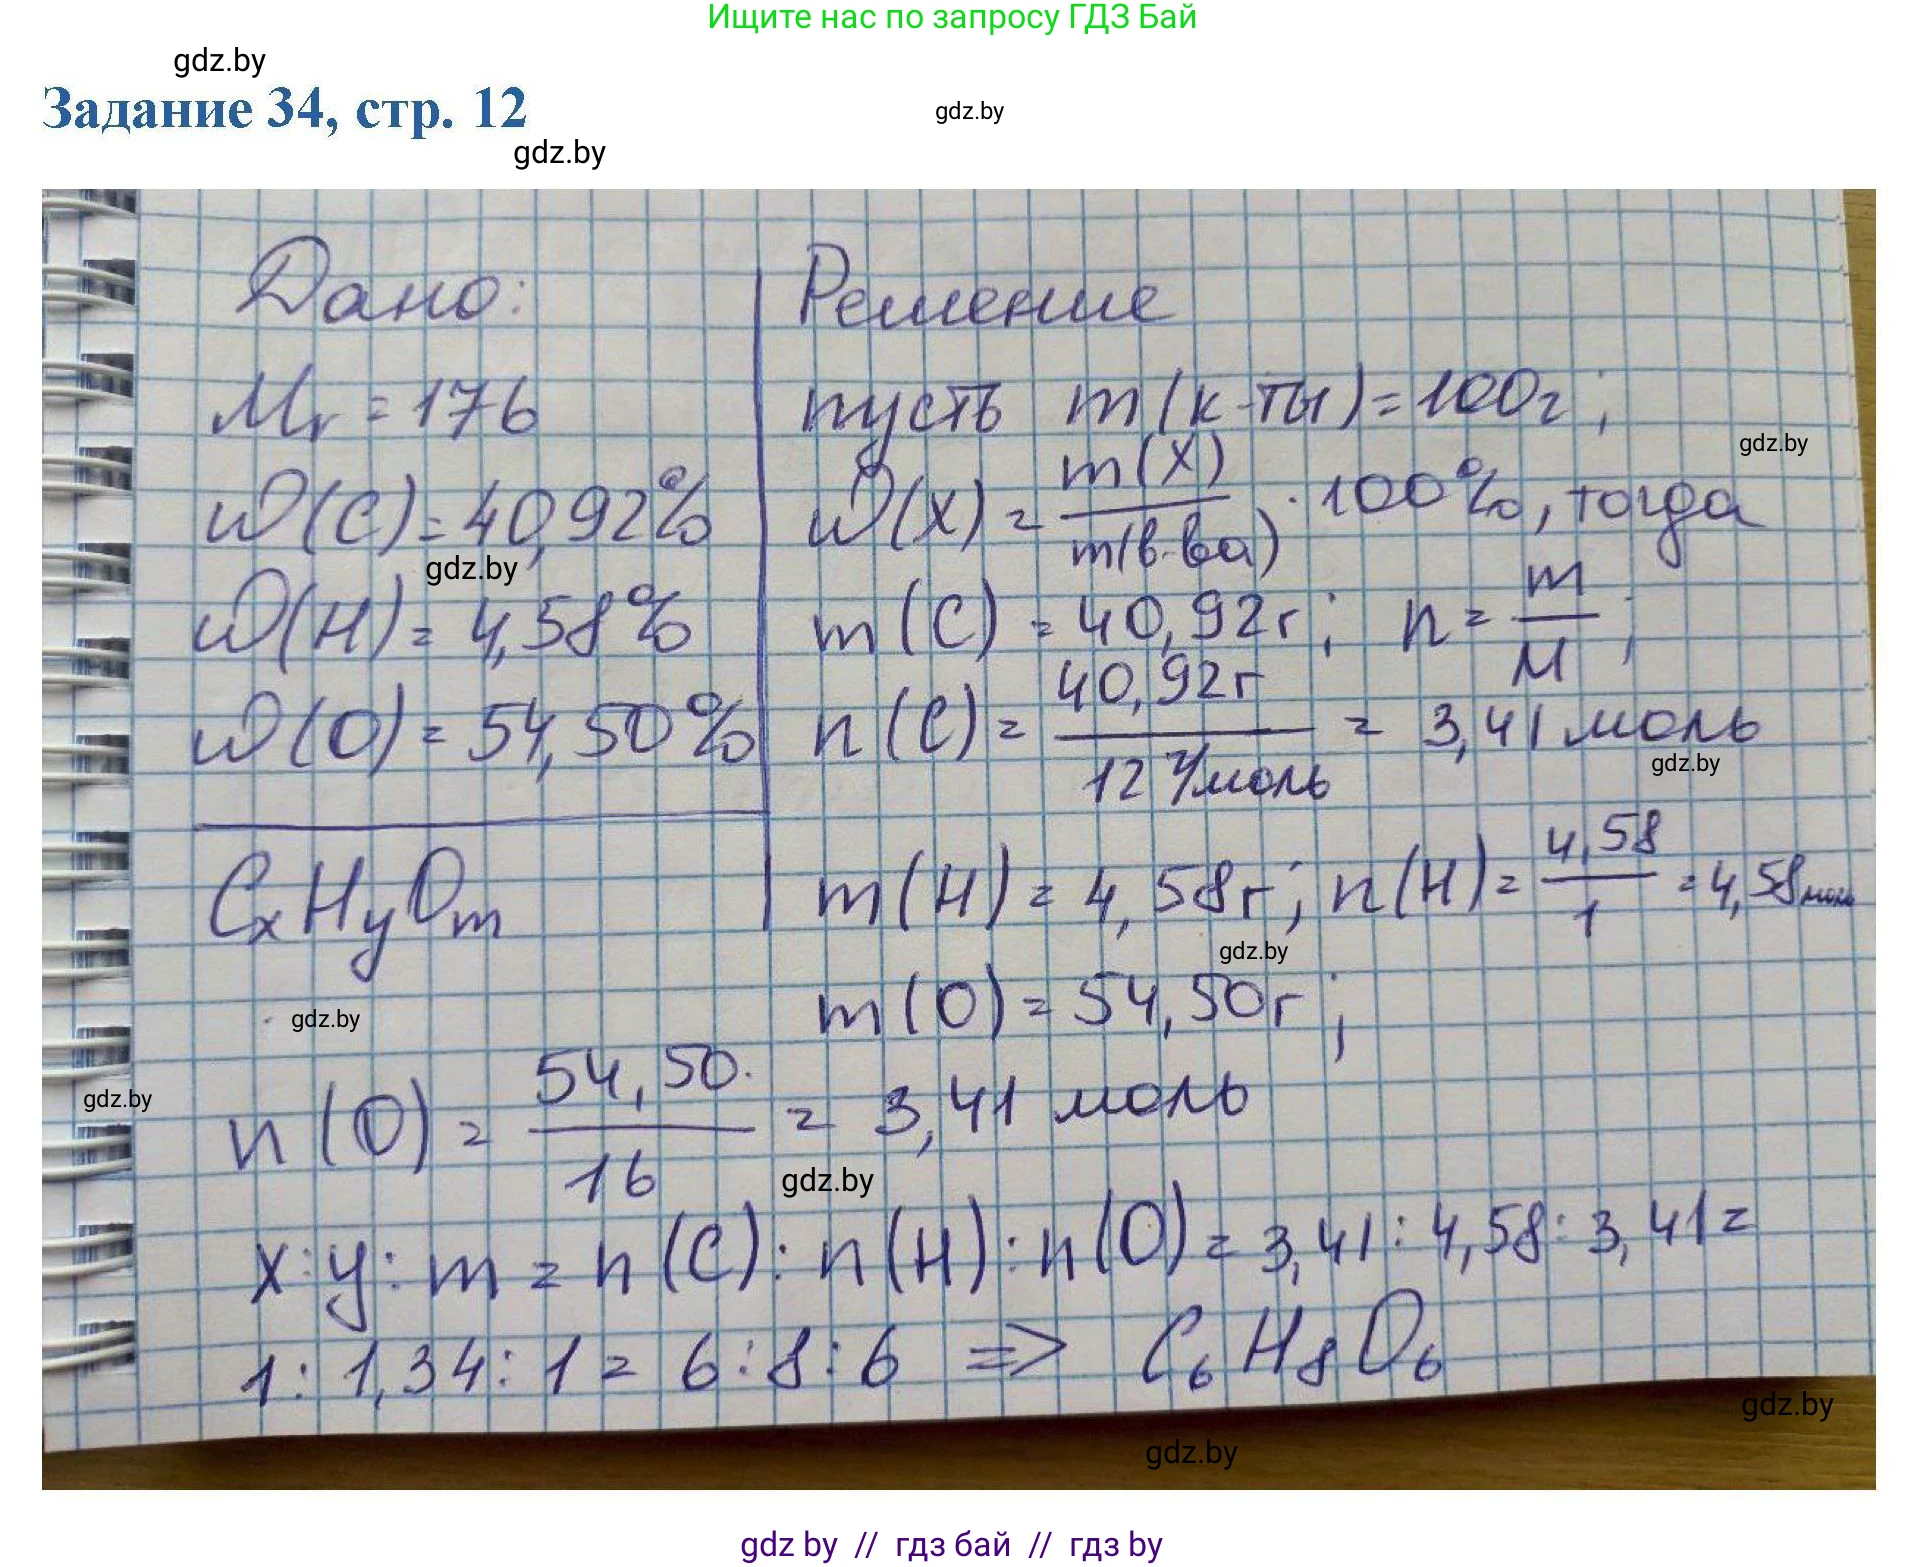 Ищите нас по запросу ГДЗ Бай
gdz.by
Задание 34, стр. 12
gdz.by
gdz.by
Дано:
Решение
Mr = 176
пусть m(к-ты)=100г;
gdz.by
W(C)=40,92%
W(X) = m(X)/m(в-ва) · 100%, тогда
gdz.by
W(H)= 4,58%
m(C) = 40,92г; n = m/M;
W(O)= 54,50%
n(C)= 40,92г/12 г/моль = 3,41 моль
gdz.by
CxHyOm
m(H)= 4,58г; n(H)= 4,58/1 = 4,58моль
gdz.by
m(O)= 54,50г;
gdz.by
gdz.by
n(O)= 54,50/16 = 3,41 моль
gdz.by
x:y:m = n(C):n(H):n(O)= 3,41:4,58:3,41=
1:1,34:1= 6:8:6 => C6H8O6
gdz.by
gdz.by
gdz by // гдз бай // гдз by